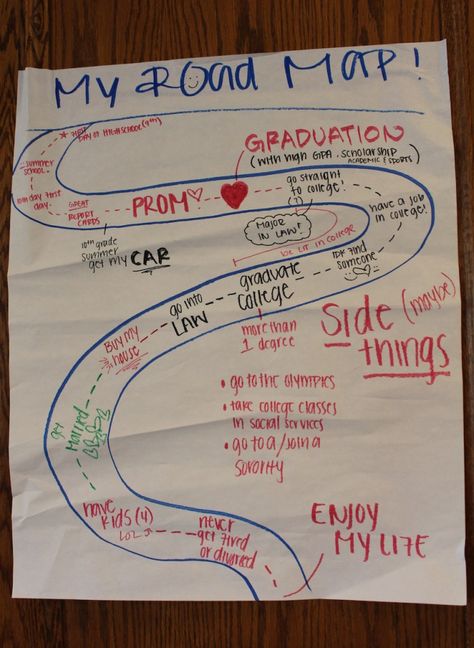 My Road Map!
DAY OF HIGH SCHOOL (9th)
Summer
school
10th day first
day
GREAT
REPORT
CARDS
PROM
10th grade
summer
get my CAR
GRADUATION
(with high GPA, scholarship
ACADEMIC & SPORTS)
go straight
to college!
(?)
MAJOR
IN LAW?
have a job
in college!
BE LIT IN college
IDK find
someone
graduate
college
more than
1 degree
go into
LAW
Buy my
house
get
Married
have
kids (4)
LOL JK
never
get fired
or divorced
ENJOY
MY LIFE
Side (maybe)
things
• go to the OLYMPICS
• take college classes
in social services
• go to a / join a
sorority